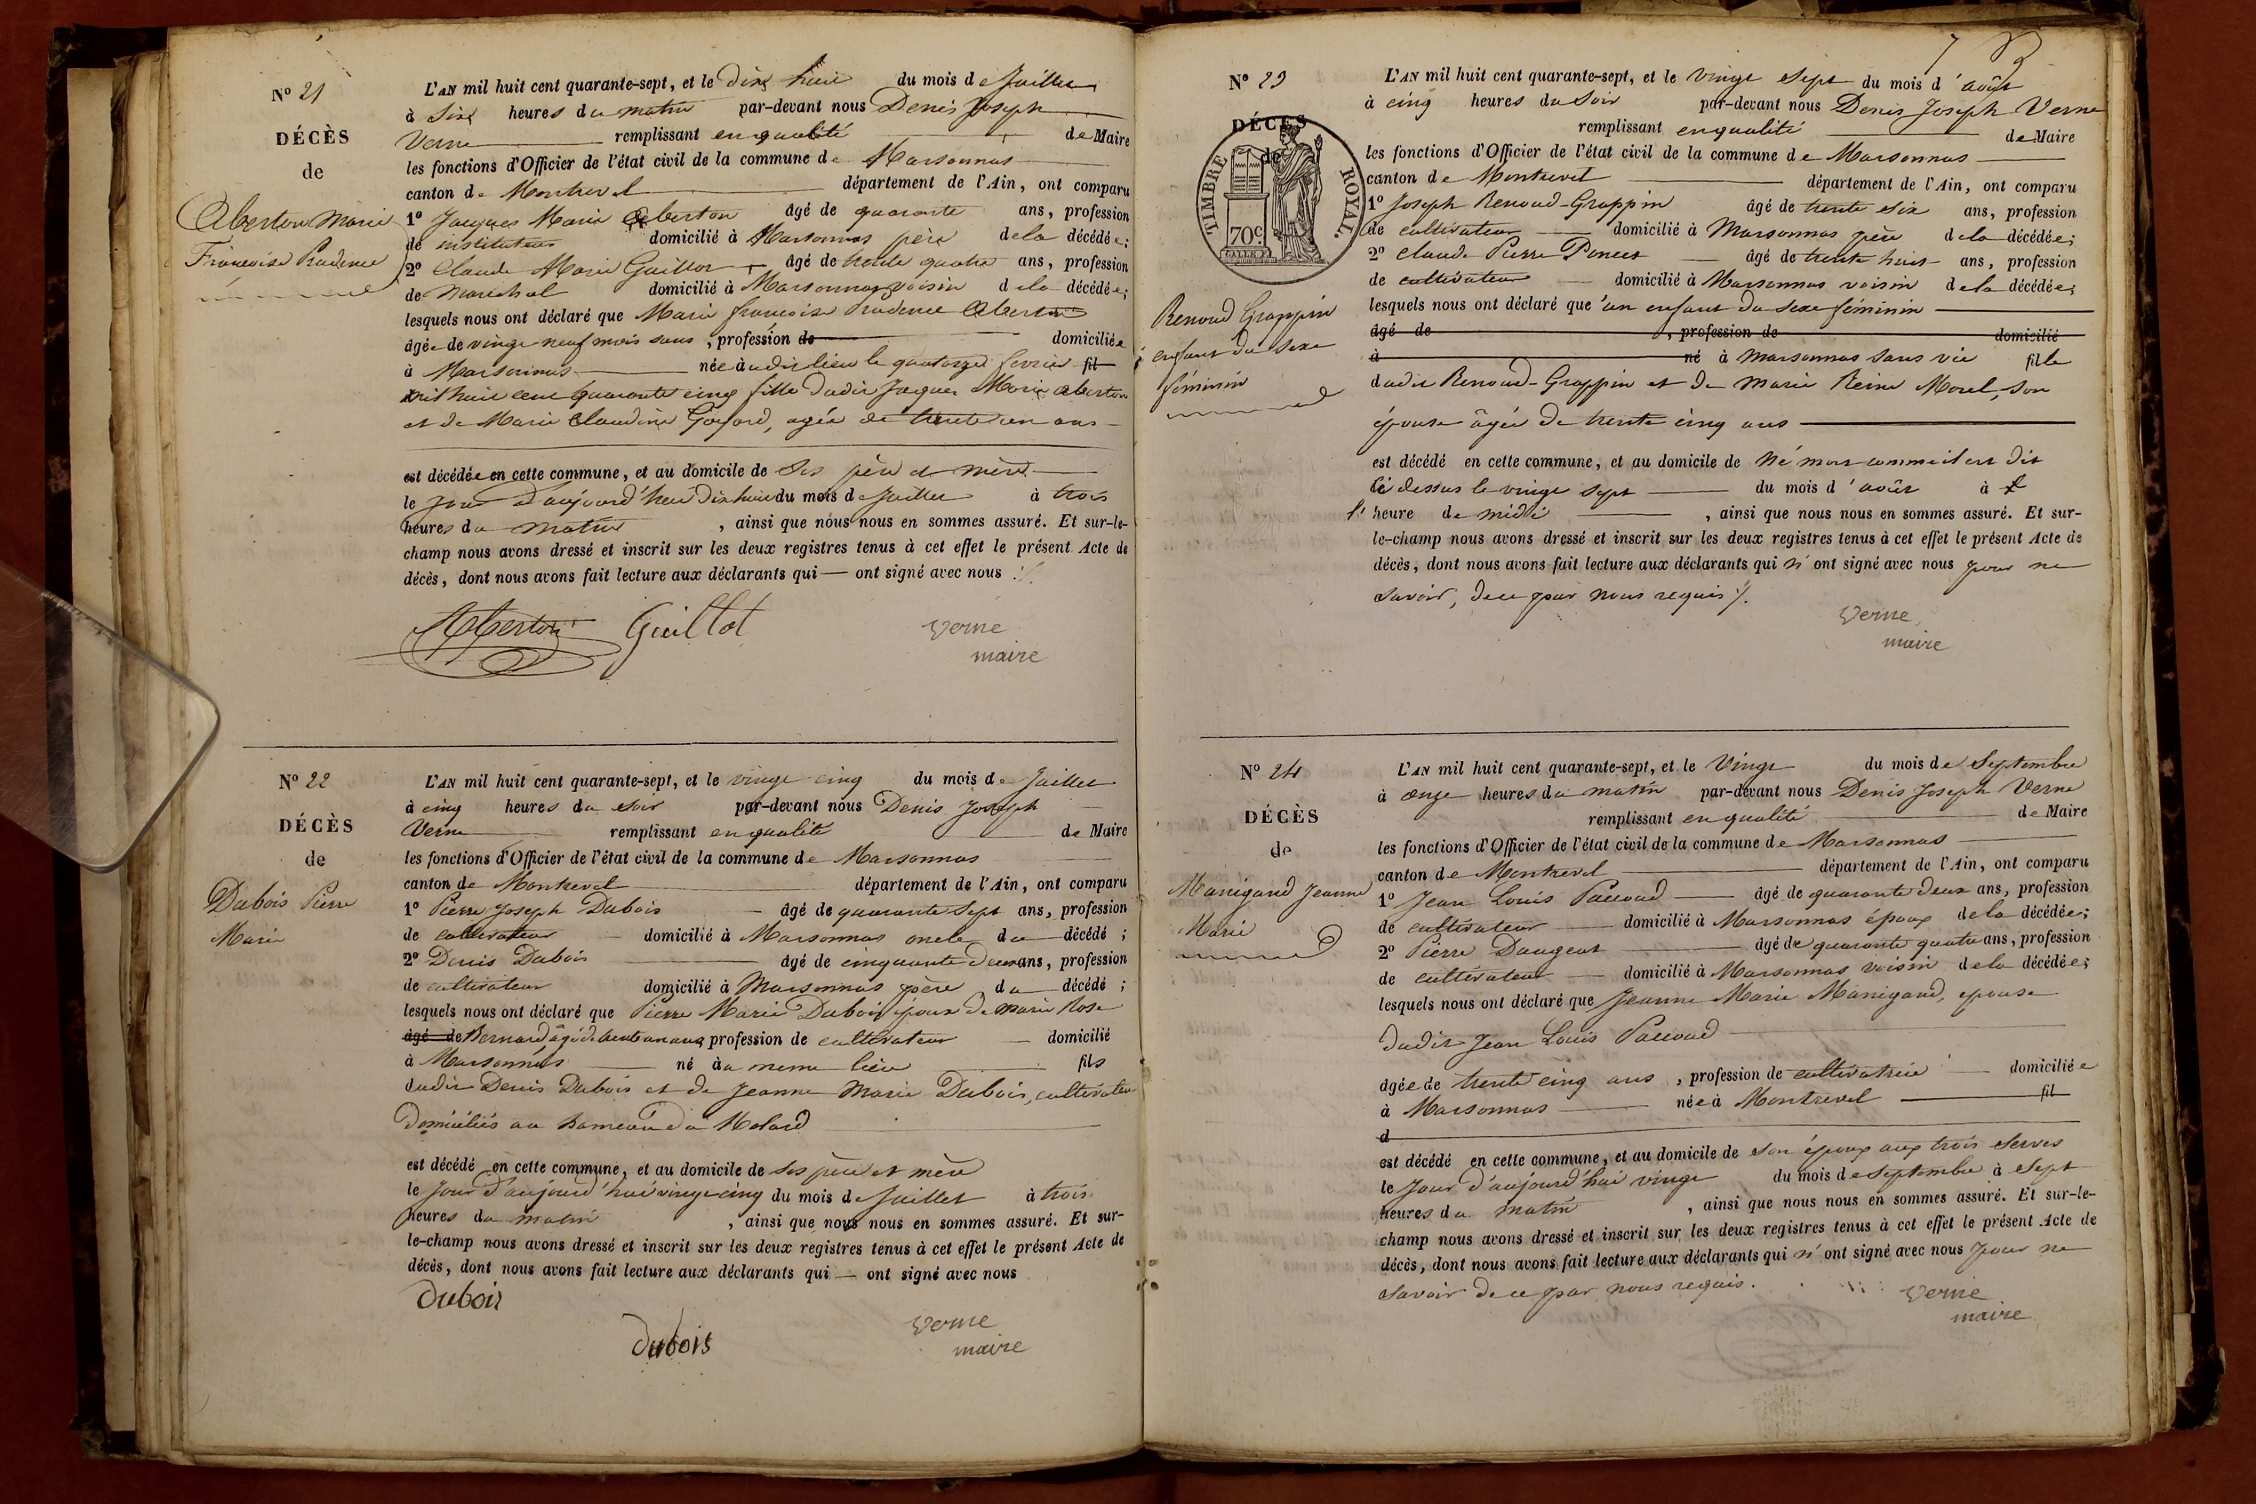 N° 21
DÉCÈS
de
Aberton Marie
Françoise Prudence
L'AN mil huit cent quarante-sept, et le dix huit du mois de Juillet
à Six heures du matin par-devant nous Denis Joseph
Verne remplissant en qualité de Maire
les fonctions d'Officier de l'état civil de la commune de Marsonnas
canton de Montrevel département de l'Ain, ont comparu
1° Jacques Marie Aberton âgé de quarante ans, profession
de instituteur domicilié à Marsonnas père de la décédée;
2° Claude Marie Guillot âgé de trente quatre ans, profession
de maréchal domicilié à Marsonnas voisin de la décédée;
lesquels nous ont déclaré que Marie françoise Prudence Aberton
âgée de vingt neuf mois sans, profession de domiciliée
à Marsonnas née audit lieu le quatorze fevrier fil
mil huit cent quarante cinq fille dudit Jaques Marie Aberton
et de Marie Claudine Goyard, agée de trente un ans
est décédée en cette commune, et au domicile de Ses père et mère
le Jour d'aujourd'hui dix huit du mois de Juillet à trois
heures du matin, ainsi que nous nous en sommes assuré. Et sur-le-
champ nous avons dressé et inscrit sur les deux registres tenus à cet effet le présent Acte de
décès, dont nous avons fait lecture aux déclarants qui — ont signé avec nous
Aberton Guillot Verne
maire
N° 22
DÉCÈS
de
Dubois Pierre
Marie
L'AN mil huit cent quarante-sept, et le vingt cinq du mois de Juillet
à cinq heures du soir par-devant nous Denis Joseph
Verne remplissant en qualité de Maire
les fonctions d'Officier de l'état civil de la commune de Marsonnas
canton de Montrevel département de l'Ain, ont comparu
1° Pierre Joseph Dubois âgé de quarante Sept ans, profession
de cultivateur domicilié à Marsonnas oncle du décédé ;
2° Denis Dubois âgé de cinquante deux ans, profession
de cultivateur domicilié à Marsonnas père du décédé ;
lesquels nous ont déclaré que Pierre Marie Dubois, époux de Marie Rose
âgé de Bernard âgé de trente un ans, profession de cultivateur domicilié
à Marsonnas né au meme lieu fils
dudit Denis Dubois et de Jeanne Marie Dubois, cultivateur
Domiciliés au hameau du Molard
est décédé en cette commune, et au domicile de Ses père et mère
le Jour d'aujourd'hui vingt cinq du mois de Juillet à trois
heures du matin, ainsi que nous nous en sommes assuré. Et sur-
le-champ nous avons dressé et inscrit sur les deux registres tenus à cet effet le présent Acte de
décès, dont nous avons fait lecture aux déclarants qui — ont signé avec nous
Dubois
Dubois Verne
maire
7
N° 23
DÉCÈS
de
TIMBRE ROYAL.
70c.
Renoud Grappin
enfant du sexe
féminin
L'AN mil huit cent quarante-sept, et le vingt Sept du mois d'août
à cinq heures du Soir par-devant nous Denis Joseph Verne
remplissant en qualité de Maire
les fonctions d'Officier de l'état civil de la commune de Marsonnas
canton de Montrevel département de l'Ain, ont comparu
1° Joseph Renoud-Grappin âgé de trente Six ans, profession
de cultivateur domicilié à Marsonnas père de la décédée;
2° Claude Pierre Poncet âgé de trente huit ans, profession
de cultivateur domicilié à Marsonnas voisin de la décédée;
lesquels nous ont déclaré que 'un enfant du Sexe féminin
âgé de , profession de domicilié
à né à Marsonnas sans vie fille
dudit Renoud-Grappin et de Marie Reine Morel, Son
épouse âgée de trente cinq ans
est décédé en cette commune, et au domicile de Né mort comme il est dit
ci dessus le vingt sept du mois d'août à
l' heure de midi, ainsi que nous nous en sommes assuré. Et sur-
le-champ nous avons dressé et inscrit sur les deux registres tenus à cet effet le présent Acte de
décès, dont nous avons fait lecture aux déclarants qui n'ont signé avec nous pour ne
Savoir, de ce par nous requis ./.
Verne
maire
N° 24
DÉCÈS
de
Manigand Jeanne
Marie
L'AN mil huit cent quarante-sept, et le Vingt du mois de Septembre
à onze heures du matin par-devant nous Denis Joseph Verne
remplissant en qualité de Maire
les fonctions d'Officier de l'état civil de la commune de Marsonnas
canton de Montrevel département de l'Ain, ont comparu
1° Jean Louis Paccoud âgé de quarante deux ans, profession
de cultivateur domicilié à Marsonnas époux de la décédée;
2° Pierre Daugeat âgé de quarante quatre ans, profession
de cultivateur domicilié à Marsonnas voisin de la décédée;
lesquels nous ont déclaré que Jeanne Marie Manigand, epouse
dudit Jean Louis Paccoud
âgée de trente cinq ans, profession de cultivatrice domiciliée
à Marsonnas née à Montrevel fil
d
est décédé en cette commune, et au domicile de Son époux aux trois Serves
le Jour d'aujourd'hui vingt du mois de Septembre à Sept
heures du matin, ainsi que nous nous en sommes assuré. Et sur-le-
champ nous avons dressé et inscrit sur les deux registres tenus à cet effet le présent Acte de
décès, dont nous avons fait lecture aux déclarants qui n'ont signé avec nous pour ne
Savoir de ce par nous requis.
Verne
maire